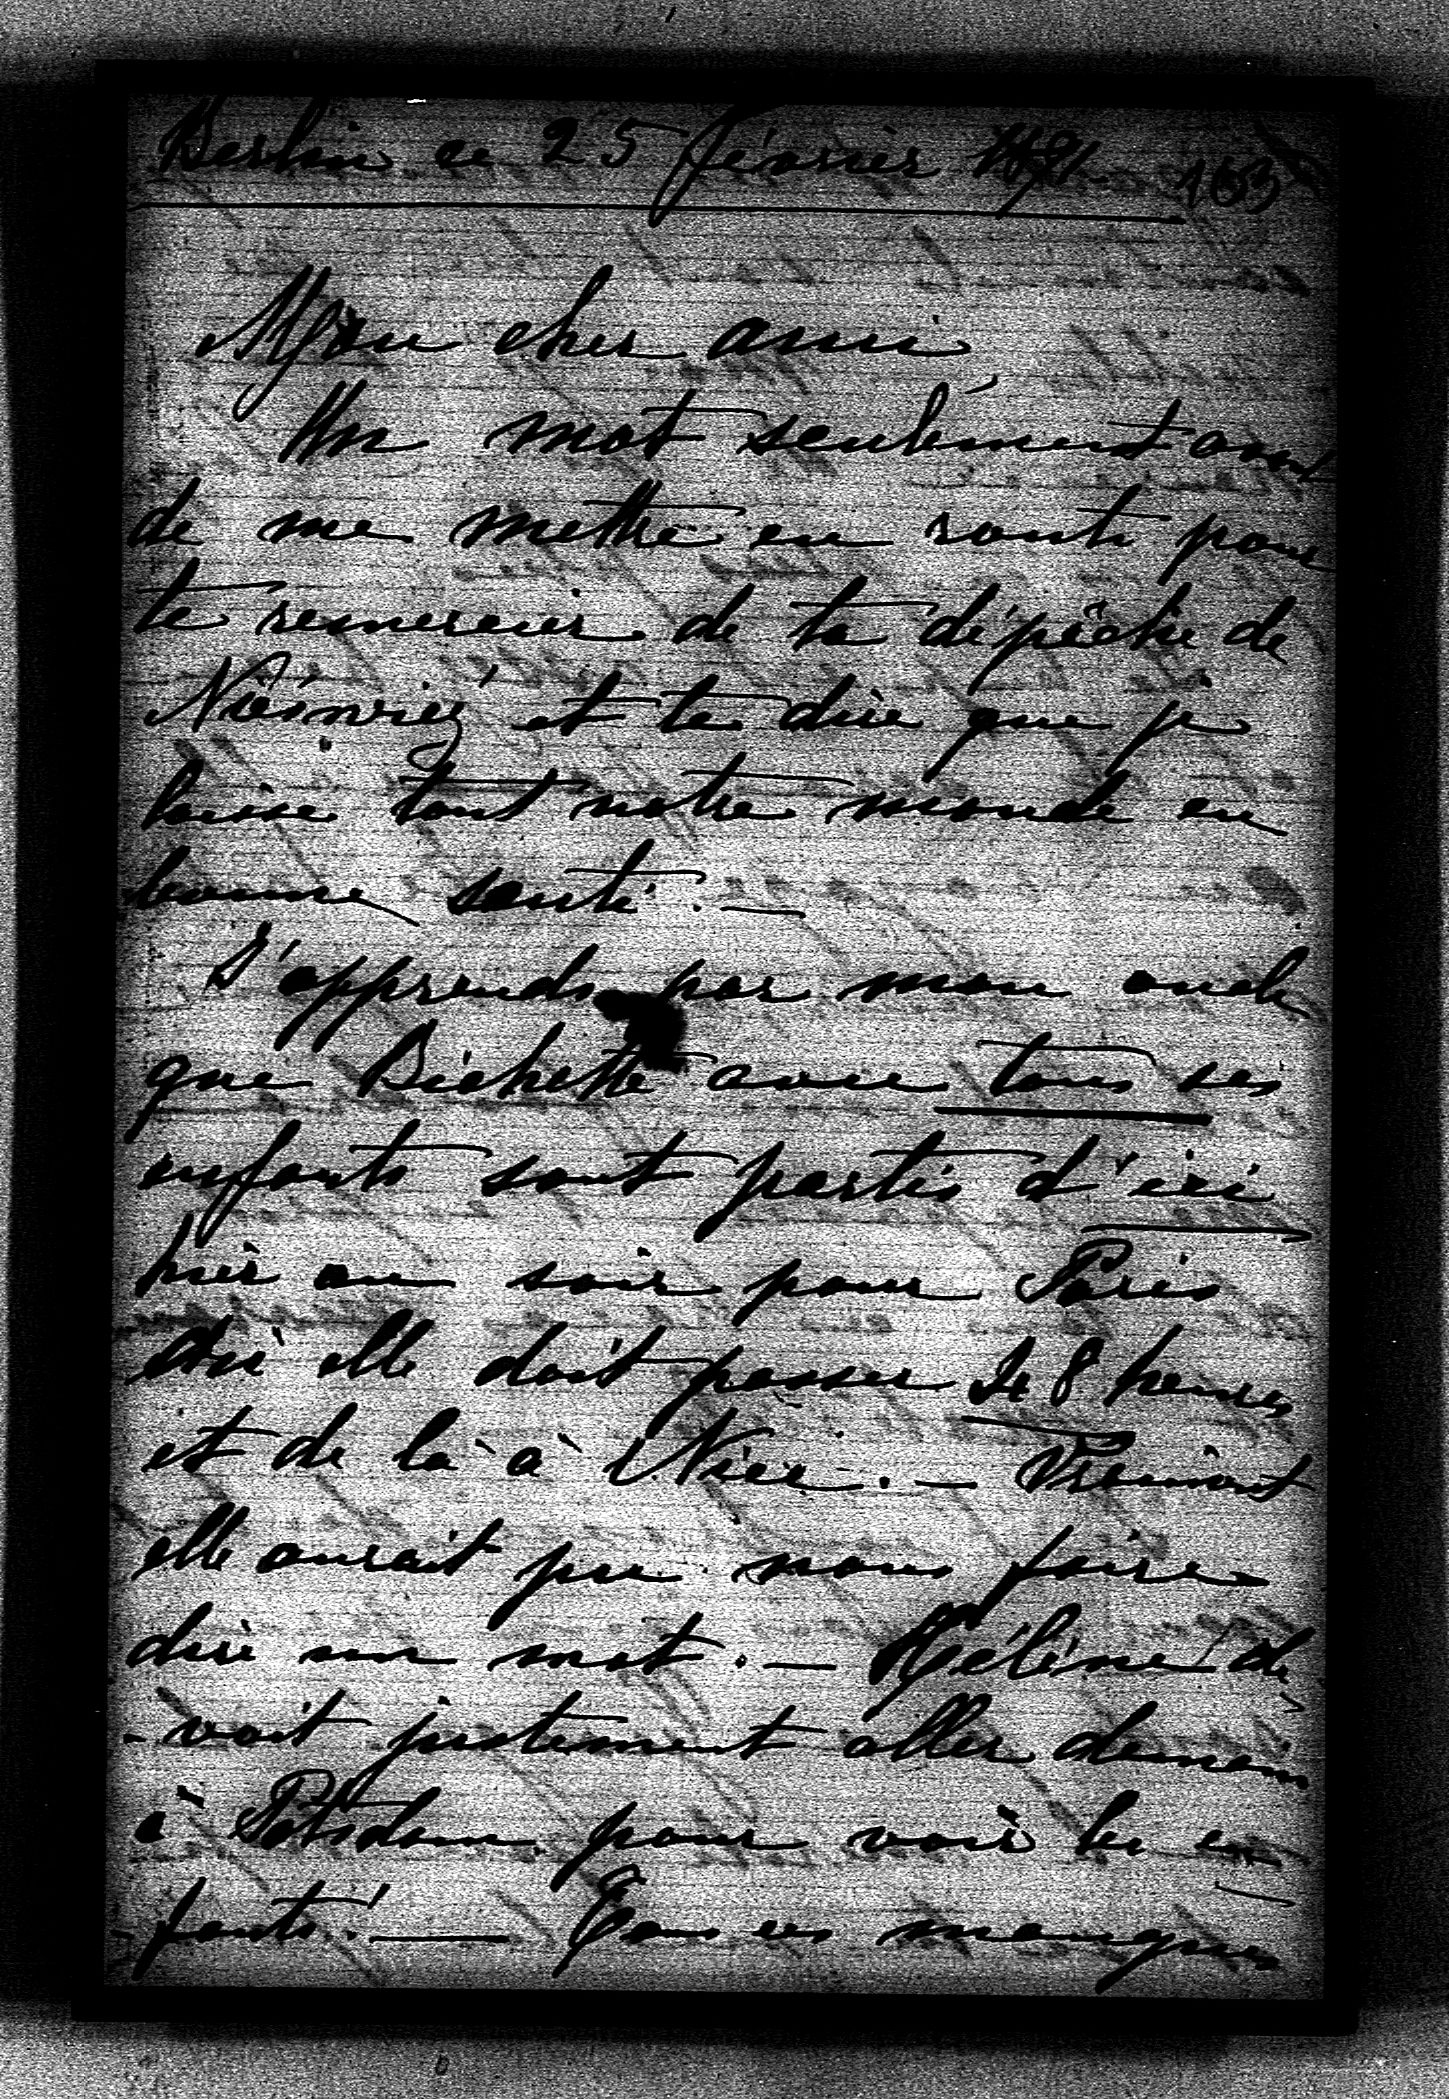 Berlin ce 25 février 1891 163
Mon cher ami
Un mot seulement avant
de me mettre en route pour
te remercier de ta dépêche de
Niésvież et te dire que je
laisse tout notre monde en
bonne santé. —
J'apprends par mon oncle
que Bichette avec tous ses
enfants sont partis d'ici
hier au soir pour Paris
où elle doit passer 48 heures
et de là à Nice. — Vraiment
elle aurait pu nous faire
dire un mot. — Hélène de
- vait justement aller demain
à Potsdam pour voir les en
- fants! — Tous ces manques